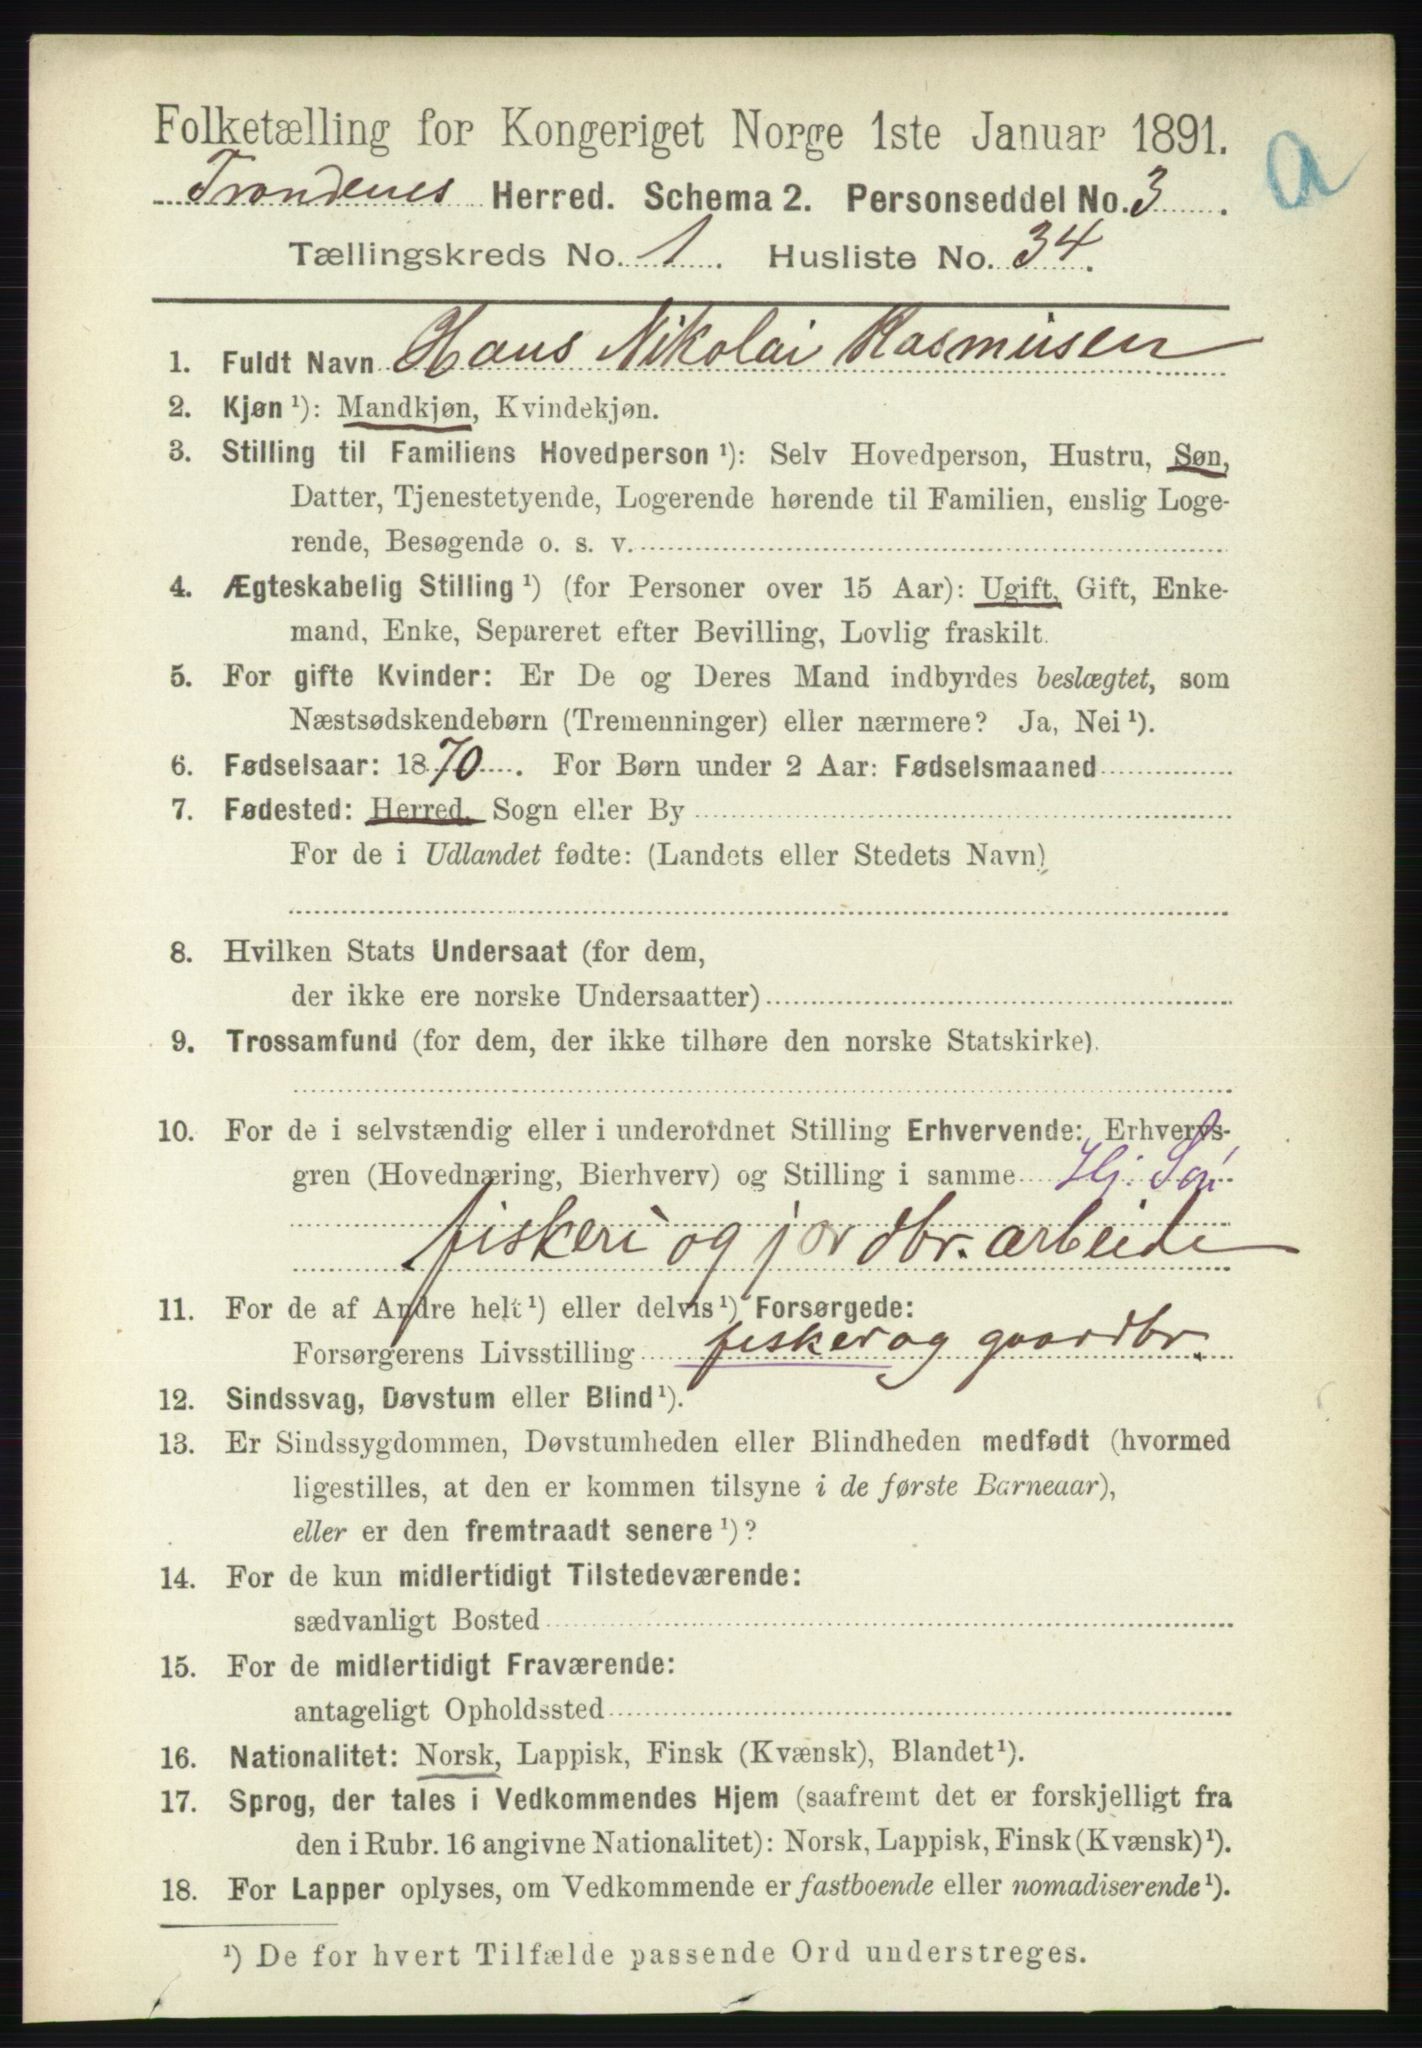 Folketælling for Kongeriget Norge 1ste Januar 1891.
a
Trondenes Herred. Schema 2. Personseddel No. 3.
Tællingskreds No. 1. Husliste No. 34.
1. Fuldt Navn Hans Nikolai Rasmusen
2. Kjøn ¹): Mandkjøn, Kvindekjøn.
3. Stilling til Familiens Hovedperson ¹): Selv Hovedperson, Hustru, Søn,
Datter, Tjenestetyende, Logerende hørende til Familien, enslig Loge-
rende, Besøgende o. s. v.
4. Ægteskabelig Stilling ¹) (for Personer over 15 Aar): Ugift, Gift, Enke-
mand, Enke, Separeret efter Bevilling, Lovlig fraskilt.
5. For gifte Kvinder: Er De og Deres Mand indbyrdes beslægtet, som
Næstsødskendebørn (Tremenninger) eller nærmere? Ja, Nei ¹).
6. Fødselsaar: 1870. For Børn under 2 Aar: Fødselsmaaned
7. Fødested: Herred, Sogn eller By
For de i Udlandet fødte: (Landets eller Stedets Navn)
8. Hvilken Stats Undersaat (for dem,
der ikke ere norske Undersaatter)
9. Trossamfund (for dem, der ikke tilhøre den norske Statskirke).
10. For de i selvstændig eller i underordnet Stilling Erhvervende: Erhvervs-
gren (Hovednæring, Bierhverv) og Stilling i samme Hj. Søn
fiskeri og jordbr. arbeide
11. For de af Andre helt ¹) eller delvis ¹) Forsørgede:
Forsørgerens Livsstilling fisker og gaardbr.
12. Sindssvag, Døvstum eller Blind ¹).
13. Er Sindssygdommen, Døvstumheden eller Blindheden medfødt (hvormed
ligestilles, at den er kommen tilsyne i de første Barneaar),
eller er den fremtraadt senere ¹)?
14. For de kun midlertidigt Tilstedeværende:
sædvanligt Bosted
15. For de midlertidigt Fraværende:
antageligt Opholdssted
16. Nationalitet: Norsk, Lappisk, Finsk (Kvænsk), Blandet ¹).
17. Sprog, der tales i Vedkommendes Hjem (saafremt det er forskjelligt fra
den i Rubr. 16 angivne Nationalitet): Norsk, Lappisk, Finsk (Kvænsk) ¹).
18. For Lapper oplyses, om Vedkommende er fastboende eller nomadiserende ¹).
¹) De for hvert Tilfælde passende Ord understreges.